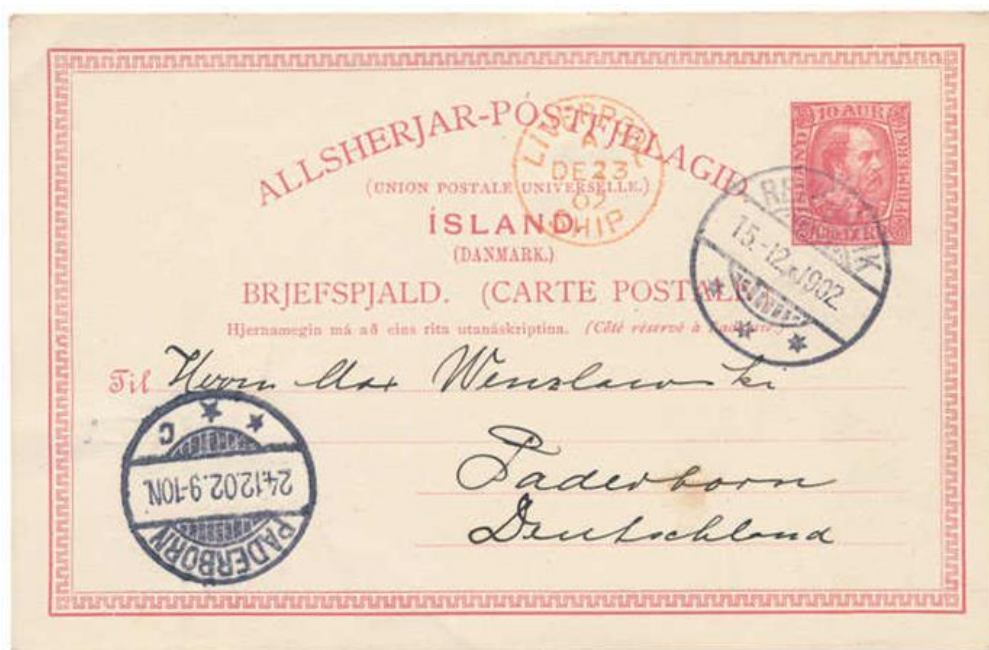 ALLSHERJAR-PÓSTFJELAGIÐ.
(UNION POSTALE UNIVERSELLE.)
ÍSLAND
(DANMARK.)
BRJEFSPJALD. (CARTE POSTALE
Hjernamegin má að eins rita utanáskriptina. (Côté réservé à
10 AUR
ÍSLAND
FRIMERKI
LIVERPOOL
A
DE 23
02
SHIP
15.-12.1902
Til Herrn Max Wenzlawski
Paderborn
Deutschland
C
24.12.02.9-10N.
PADERBORN